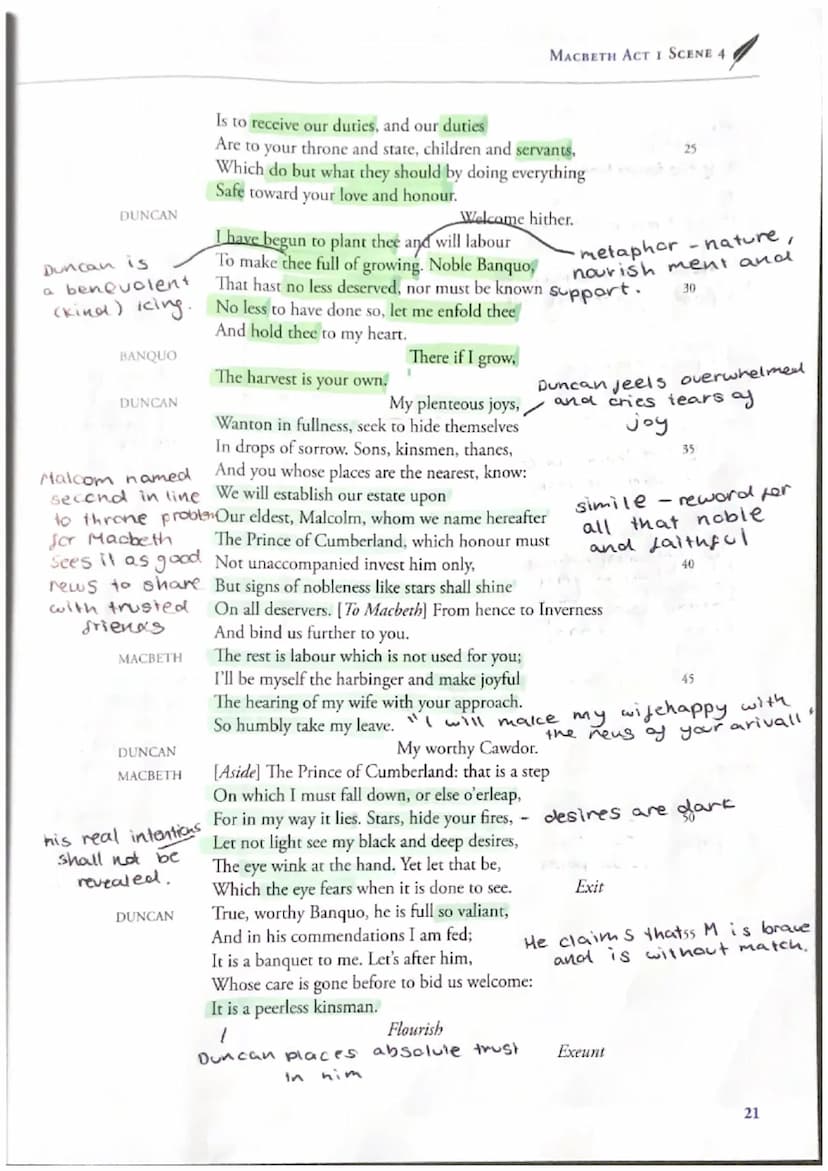 MACBETH ACT 1 SCENE 4
Is to receive our duties, and our duties
Are to your throne and state, children and servants, 25
Which do but what they should by doing everything
Safe toward your love and honour.
DUNCAN Welcome hither.
I have begun to plant thee and will labour
To make thee full of growing. Noble Banquo,
That hast no less deserved, nor must be known 30
No less to have done so, let me enfold thee
And hold thee to my heart.
Duncan is
a benevolent
(kind) king.
metaphor - nature,
nourish ment and
support.
BANQUO There if I grow,
The harvest is your own.
DUNCAN My plenteous joys,
Wanton in fullness, seek to hide themselves
In drops of sorrow. Sons, kinsmen, thanes, 35
And you whose places are the nearest, know:
We will establish our estate upon
Our eldest, Malcolm, whom we name hereafter
The Prince of Cumberland, which honour must
Not unaccompanied invest him only, 40
But signs of nobleness like stars shall shine
On all deservers. [To Macbeth] From hence to Inverness
And bind us further to you.
Duncan feels overwhelmed
and cries tears of
joy
Malcom named
second in line
to throne problem
for Macbeth
sees it as good
news to share
with trusted
friends
simile - reword for
all that noble
and faithful
MACBETH The rest is labour which is not used for you;
I'll be myself the harbinger and make joyful 45
The hearing of my wife with your approach.
So humbly take my leave.
"I will make my wifehappy with
the news of your arivall"
DUNCAN My worthy Cawdor.
MACBETH [Aside] The Prince of Cumberland: that is a step
On which I must fall down, or else o'erleap,
For in my way it lies. Stars, hide your fires, 50
Let not light see my black and deep desires,
The eye wink at the hand. Yet let that be,
Which the eye fears when it is done to see. Exit
- desires are dark
his real intentions
shall not be
revealed.
DUNCAN True, worthy Banquo, he is full so valiant,
And in his commendations I am fed;
It is a banquet to me. Let's after him,
Whose care is gone before to bid us welcome:
It is a peerless kinsman.
Flourish
Exeunt
He claims thatss M is brave
and is without match.
Duncan places absolute trust
in him
21